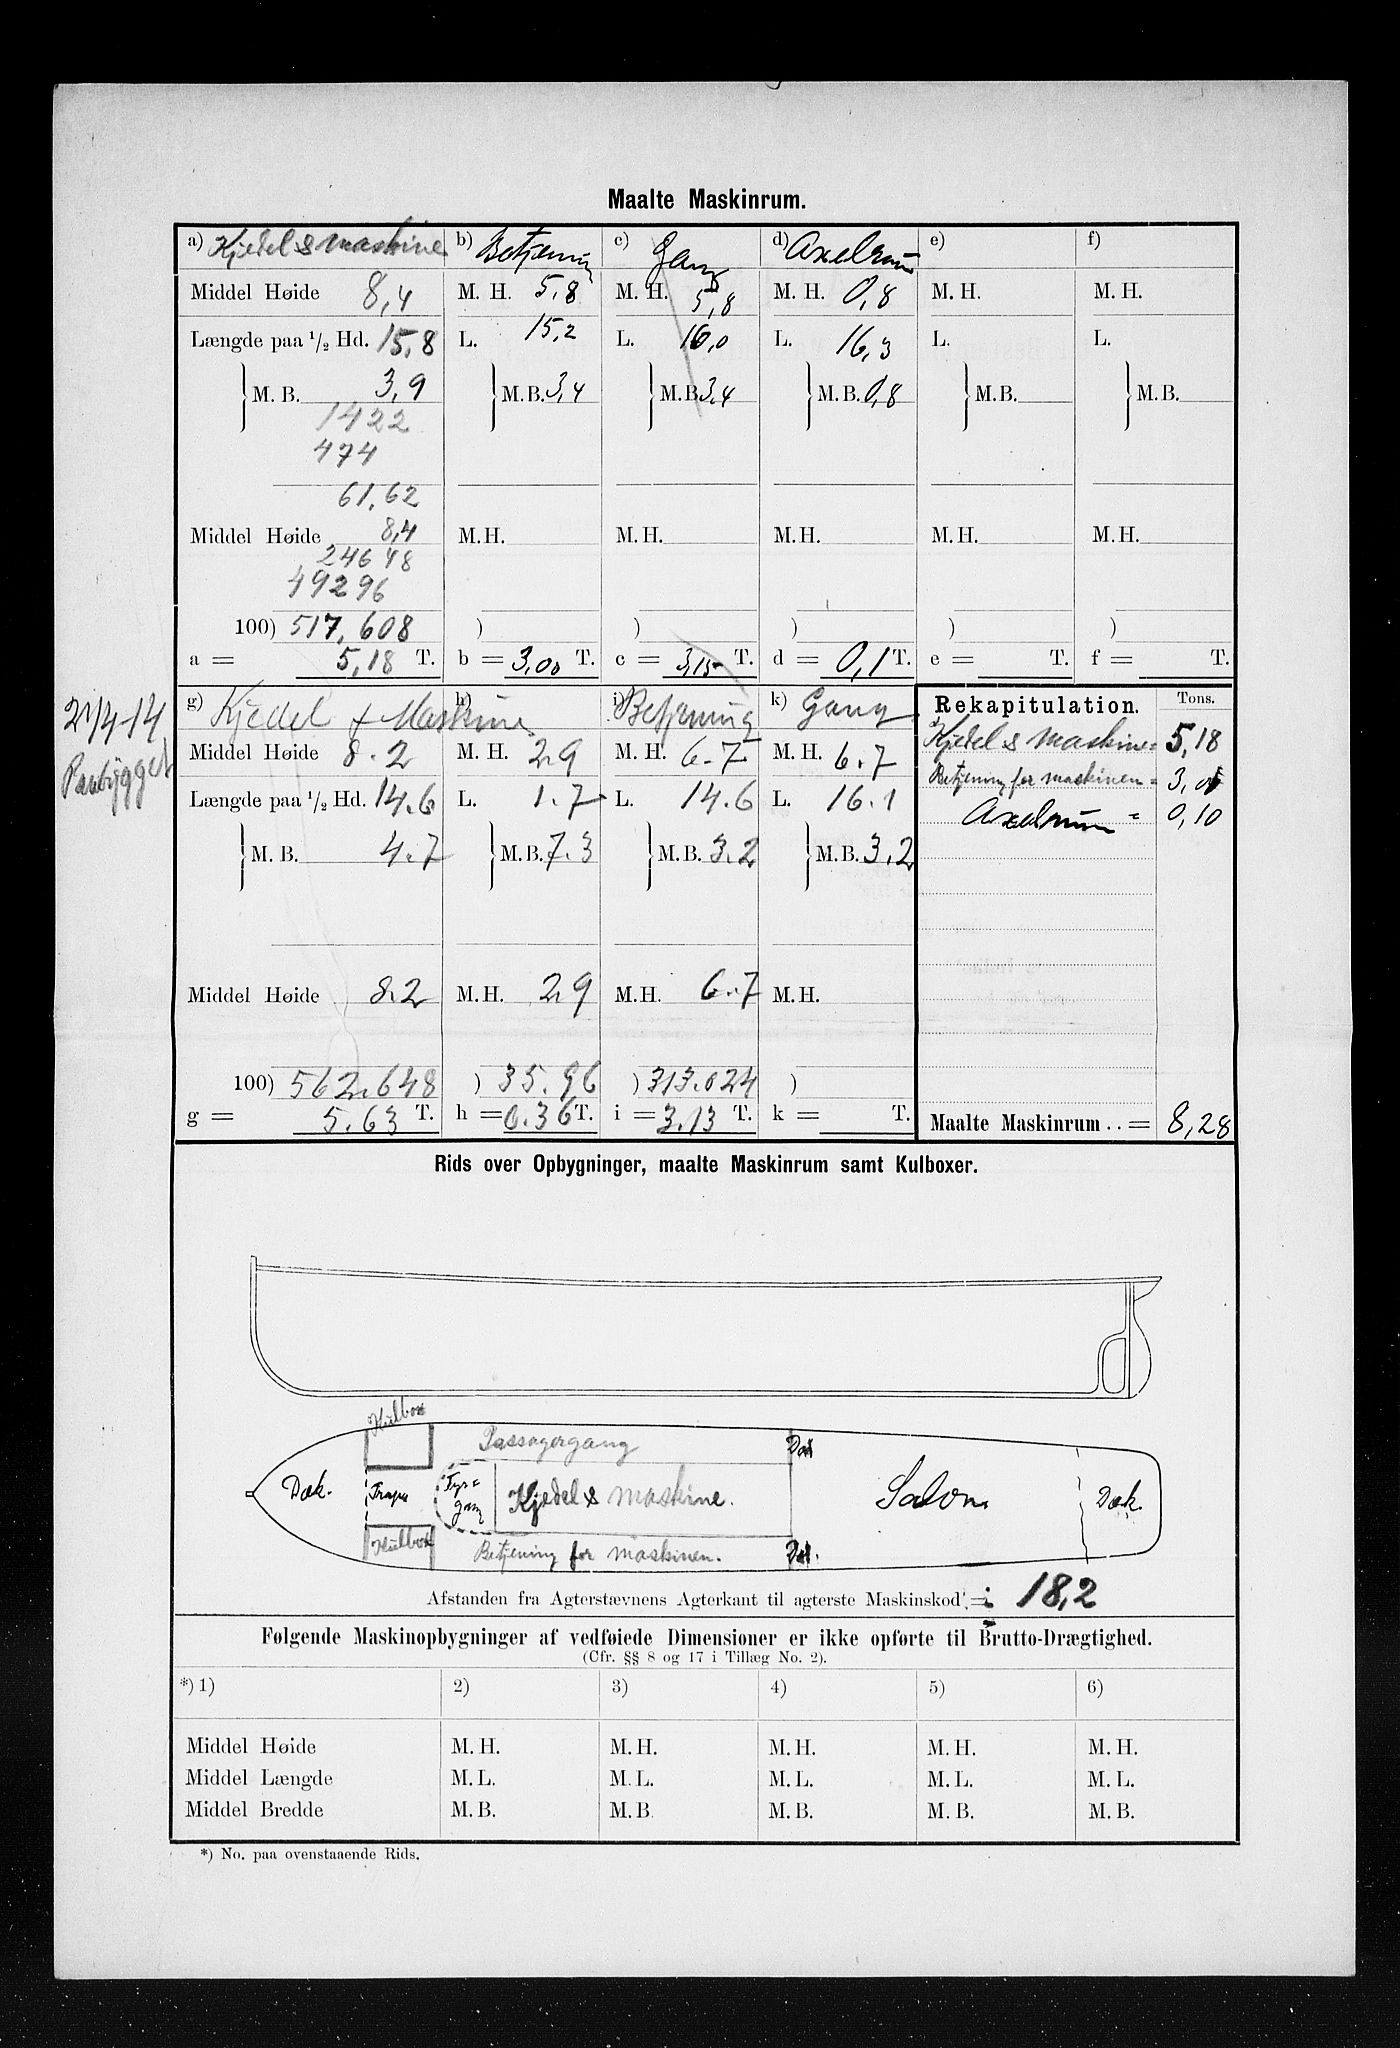 Maalte Maskinrum.
a) Kjedel & maskine b) Betjening c) Gang d) Axelrum e) f)
Middel Høide 8,4 M. H. 5,8 M. H. 5,8 M. H. 0,8 M. H. M. H.
Længde paa 1/2 Hd. 15,8 L. 15,2 L. 16,0 L. 16,3 L. L.
M. B. 3,9 M. B. 3,4 M. B. 3,4 M. B. 0,8 M. B. M. B.
1422
474
61,62
Middel Høide 8,4 M. H. M. H. M. H. M. H. M. H.
24648
49296
100) 517,608 ) ) ) ) )
a = 5,18 T. b = 3,00 T. c = 3,15 T. d = 0,1 T. e = T. f = T.
21/4-14
Paabygget
g) Kjedel & Maskine h) i) Betjening k) Gang
Middel Høide 8.2 M. H. 2.9 M. H. 6.7 M. H. 6.7
Længde paa 1/2 Hd. 14.6 L. 1.7 L. 14.6 L. 16.1
M. B. 4.7 M. B. 7.3 M. B. 3.2 M. B. 3.2
Middel Høide 8.2 M. H. 2.9 M. H. 6.7 M. H.
100) 562.648 ) 35.96 ) 313.024 )
g = 5.63 T. h = 0.36 T. i = 3.13 T. k = T.
Rekapitulation. Tons.
Kjedel & maskine = 5,18
Betjening for maskinen = 3,00
Axelrum = 0,10
Maalte Maskinrum .. = 8,28
Rids over Opbygninger, maalte Maskinrum samt Kulboxer.
Kulbox
Passagergang
Dæk. Trape Fyr=
gang Kjedel & maskine. Salon. Dæk.
Kulbox Betjening for maskinen.
Afstanden fra Agterstævnens Agterkant til agterste Maskinskod = 18,2
Følgende Maskinopbygninger af vedføiede Dimensioner er ikke opførte til Brutto-Drægtighed.
(Cfr. §§ 8 og 17 i Tillæg No. 2).
*) 1) 2) 3) 4) 5) 6)
Middel Høide M. H. M. H. M. H. M. H. M. H.
Middel Længde M. L. M. L. M. L. M. L. M. L.
Middel Bredde M. B. M. B. M. B. M. B. M. B.
*) No. paa ovenstaaende Rids.